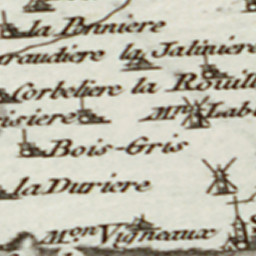 la Bonniere
raudiere la Jaliniere
Corbeliere la Rouill
isiere Min Lab
Bois-Gris
la Duriere
Mon Vigneaux